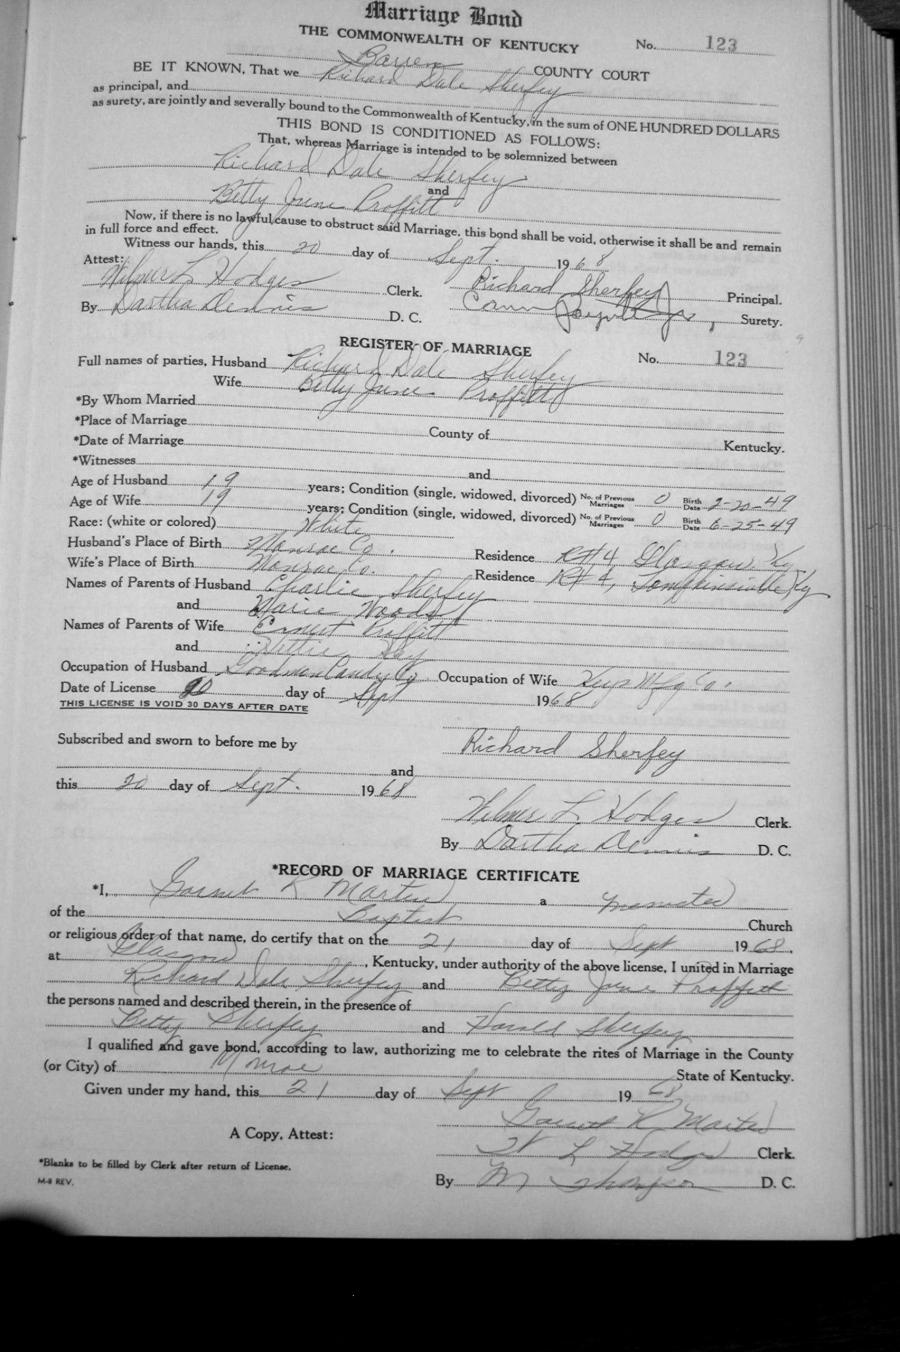 Marriage Bond
THE COMMONWEALTH OF KENTUCKY No. 123
Barren COUNTY COURT
BE IT KNOWN, That we Richard Dale Sherfey
as principal, and
as surety, are jointly and severally bound to the Commonwealth of Kentucky, in the sum of ONE HUNDRED DOLLARS
THIS BOND IS CONDITIONED AS FOLLOWS:
That, whereas Marriage is intended to be solemnized between
Richard Dale Sherfey
and
Betty June Proffitt
Now, if there is no lawful cause to obstruct said Marriage, this bond shall be void, otherwise it shall be and remain
in full force and effect.
Witness our hands, this 20 day of Sept. 1968
Attest:
Wilmer L Hodges Clerk. Richard Sherfey Principal.
By Dartha Dennis D. C. Surety.
REGISTER OF MARRIAGE
Full names of parties, Husband Richard Dale Sherfey No. 123
Wife Betty June Proffitt
*By Whom Married
*Place of Marriage
*Date of Marriage County of Kentucky.
*Witnesses and
Age of Husband 19 years; Condition (single, widowed, divorced) No. of Previous Marriages 0 Birth Date 2-20-49
Age of Wife 19 years; Condition (single, widowed, divorced) No. of Previous Marriages 0 Birth Date 6-25-49
Race: (white or colored) White
Husband's Place of Birth Monroe Co. Residence Rt 4, Glasgow Ky
Wife's Place of Birth Monroe Co. Residence Rt 4, Tompkinsville Ky
Names of Parents of Husband Charlie Sherfey
and Marie Woods
Names of Parents of Wife Ernest Proffitt
and Hettie Ray
Occupation of Husband Goodman Candy Co Occupation of Wife Keys Mfg Co.
Date of License 20 day of Sept 1968
THIS LICENSE IS VOID 30 DAYS AFTER DATE
Subscribed and sworn to before me by Richard Sherfey
and
this 20 day of Sept. 1968
Wilmer L Hodges Clerk.
By Dartha Dennis D. C.
*RECORD OF MARRIAGE CERTIFICATE
*I, Garnet R Martin a minister
of the Baptist Church
or religious order of that name, do certify that on the 21 day of Sept 1968,
at Glasgow, Kentucky, under authority of the above license, I united in Marriage
Richard Dale Sherfey and Betty June Proffitt
the persons named and described therein, in the presence of
Betty Sherfey and Harold Sherfey
I qualified and gave bond, according to law, authorizing me to celebrate the rites of Marriage in the County
(or City) of Monroe State of Kentucky.
Given under my hand, this 21 day of Sept 1968
Garnett R Martin
A Copy, Attest:
W L Hodges Clerk.
*Blanks to be filled by Clerk after return of License.
M-8 REV.
By M Thompson D. C.